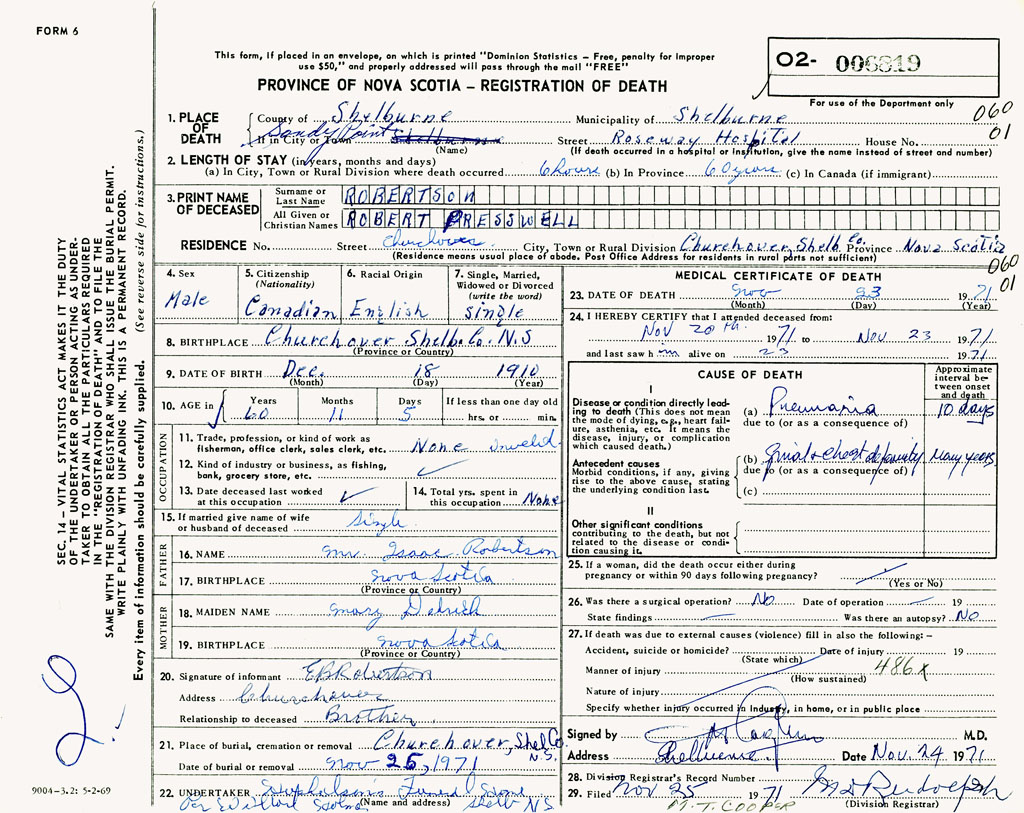 FORM 6
This form, if placed in an envelope, on which is printed "Dominion Statistics – Free, penalty for improper
use $50," and properly addressed will pass through the mail "FREE"
PROVINCE OF NOVA SCOTIA – REGISTRATION OF DEATH
O2- 006819
For use of the Department only
060
01
1. PLACE OF DEATH
County of Shelburne Municipality of Shelburne
If in City or Town Sandy Point Shelburne Street Roseway Hospital House No.
(Name) (If death occurred in a hospital or institution, give the name instead of street and number)
2. LENGTH OF STAY (in years, months and days)
(a) In City, Town or Rural Division where death occurred 6 hours (b) In Province 60 years (c) In Canada (if immigrant)
3. PRINT NAME OF DECEASED
Surname or Last Name ROBERTSON
All Given or Christian Names ROBERT PRESSWELL
RESIDENCE No. Street Churchover City, Town or Rural Division Churchover, Shelb Co. Province Nova Scotia
(Residence means usual place of abode. Post Office Address for residents in rural parts not sufficient)
060
01
4. Sex
Male
5. Citizenship
(Nationality)
Canadian
6. Racial Origin
English
7. Single, Married,
Widowed or Divorced
(write the word)
Single
8. BIRTHPLACE Churchover Shelb. Co. N.S
(Province or Country)
9. DATE OF BIRTH Dec. 18 1910
(Month) (Day) (Year)
10. AGE in
Years Months Days If less than one day old
60 11 5 hrs. or min.
OCCUPATION
11. Trade, profession, or kind of work as
fisherman, office clerk, sales clerk, etc. None Invalid
12. Kind of industry or business, as fishing,
bank, grocery store, etc.
13. Date deceased last worked
at this occupation
14. Total yrs. spent in
this occupation None
15. If married give name of wife
or husband of deceased Single
FATHER
16. NAME Mr. Isaac Robertson
17. BIRTHPLACE Nova Scotia
(Province or Country)
MOTHER
18. MAIDEN NAME Mary
19. BIRTHPLACE Nova Scotia
(Province or Country)
20. Signature of informant Robertson
Address Churchover
Relationship to deceased Brother
21. Place of burial, cremation or removal Churchover, Shel Co. N.S.
Date of burial or removal Nov 25, 1971
22. UNDERTAKER Funeral Home
(Name and address) Shelb NS
MEDICAL CERTIFICATE OF DEATH
23. DATE OF DEATH Nov 23 1971
(Month) (Day) (Year)
24. I HEREBY CERTIFY that I attended deceased from:
Nov 20th 1971 to Nov 23 1971
and last saw him alive on 23 1971
CAUSE OF DEATH
Approximate
interval be-
tween onset
and death
I
Disease or condition directly lead-
ing to death (This does not mean
the mode of dying, e.g., heart fail-
ure, asthenia, etc. It means the
disease, injury, or complication
which caused death.)
(a) Pneumonia 10 days
due to (or as a consequence of)
Antecedent causes
Morbid conditions, if any, giving
rise to the above cause, stating
the underlying condition last.
(b) Spinal & chest deformity Many years
due to (or as a consequence of)
(c)
II
Other significant conditions
contributing to the death, but not
related to the disease or condi-
tion causing it.
25. If a woman, did the death occur either during
pregnancy or within 90 days following pregnancy?
(Yes or No)
26. Was there a surgical operation? No Date of operation 19
State findings Was there an autopsy? No
27. If death was due to external causes (violence) fill in also the following: –
Accident, suicide or homicide? Date of injury 19
(State which)
Manner of injury 486X
(How sustained)
Nature of injury
Specify whether injury occurred in Industry, in home, or in public place
Signed by M.D.
Address Shelburne Date Nov. 24 1971
28. Division Registrar's Record Number
29. Filed Nov 25 1971
(Division Registrar)
M.T. COOPER
SEC. 14 – VITAL STATISTICS ACT MAKES IT THE DUTY
OF THE UNDERTAKER OR PERSON ACTING AS UNDER-
TAKER TO OBTAIN ALL THE PARTICULARS REQUIRED
IN THE "REGISTRATION OF DEATH" AND TO FILE THE
SAME WITH THE DIVISION REGISTRAR WHO SHALL ISSUE THE BURIAL PERMIT.
WRITE PLAINLY WITH UNFADING INK. THIS IS A PERMANENT RECORD.
Every item of information should be carefully supplied. (See reverse side for instructions.)
9004-3.2: 5-2-69